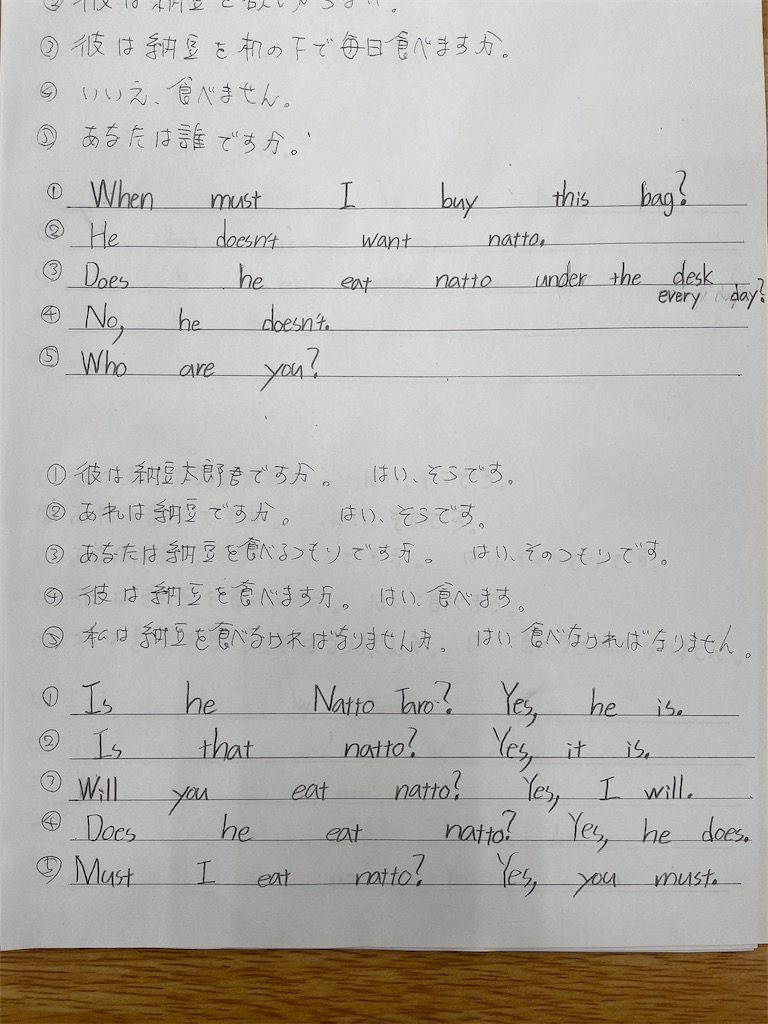 ③ 彼は納豆を机の下で毎日食べますか。
④ いいえ、食べません。
⑤ あなたは誰ですか。
① When must I buy this bag?
② He doesn't want natto.
③ Does he eat natto under the desk
every day?
④ No, he doesn't.
⑤ Who are you?
① 彼は納豆太郎君ですか。 はい、そうです。
② あれは納豆ですか。 はい、そうです。
③ あなたは納豆を食べるつもりですか。 はい、そのつもりです。
④ 彼は納豆を食べますか。 はい、食べます。
⑤ 私は納豆を食べなければなりませんか。 はい、食べなければなりません。
① Is he Natto Taro? Yes, he is.
② Is that natto? Yes, it is.
③ Will you eat natto? Yes, I will.
④ Does he eat natto? Yes, he does.
⑤ Must I eat natto? Yes, you must.